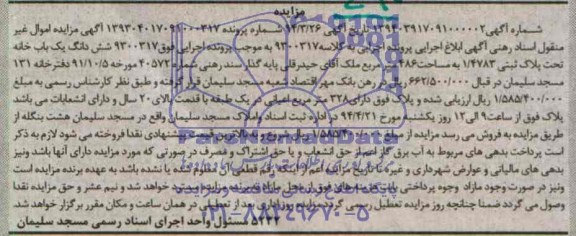 مزایده
شماره آگهی ۱۳۹۴۰۳۹۱۷۰۹۱۰۰۰۰۰۲ تاریخ آگهی ۹۴/۳/۲۶ شماره پرونده ۱۳۹۳۰۴۰۱۷۰۹۱۰۰۰۳۱۷ آگهی مزایده اموال غیر
منقول اسناد رهنی آگهی ابلاغ اجرایی پرونده اجرایی به کلاسه ۹۳۰۰۳۱۷ به موجب پرونده اجرایی فوق ۹۳۰۰۳۱۷ شش دانگ یک باب خانه
تحت پلاک ثبتی ۱/۴۷۸۳ به مساحت ۴۸۶ متر مربع ملک آقای حیدرقلی پایه گذار سند رهنی شماره ۴۰۵۷۲ مورخه ۹۱/۱۰/۵ دفترخانه ۱۳۱
مسجد سلیمان در قبال ۶۶۲/۵۰۰/۰۰۰ ریال در رهن بانک مهر اقتصاد شعبه مسجد سلیمان قرار گرفته و طبق نظر کارشناس رسمی به مبلغ
۱/۵۸۵/۴۰۰/۰۰۰ ریال ارزیابی شده و پلاک فوق دارای ۳۲۸ متر مربع اعیانی در یک طبقه با قدمت بالای ۲۰ سال و دارای انشعابات می باشد
پلاک فوق از ساعت ۹ الی ۱۲ روز یکشنبه مورخ ۹۴/۴/۲۱ در اداره ثبت اسناد و املاک مسجد سلیمان واقع در مسجد سلیمان هشت بنگله از
طریق مزایده به فروش می رسد مزایده از مبلغ ۱/۵۸۵/۴۰۰/۰۰۰ ریال شروع و به بالاترین قیمت پیشنهادی نقدا فروخته می شود لازم به ذکر
است پرداخت بدهی های مربوط به آب برق گاز اعم از حق انشعاب و یا حق اشتراک و مصرف در صورتی که مورد مزایده دارای آنها باشد ونیز
بدهی های مالیاتی و عوارض شهرداری و غیره تا تاریخ مزایده اعم از اینکه رقم قطعی آن معلوم شده یا نشده باشد به عهده برنده مزایده است
ونیز در صورت وجود مازاد وجوه پرداختی بابت هزینه های فوق از محل مازاد به برنده مزایده مسترد خواهد شد و نیم عشر و حق مزایده نقدا
وصول می گردد ضمنا چنانچه روز مزایده تعطیل رسمی گردد مزایده روز اداری بعد از تعطیلی در همان ساعت و مکان مقرر برگزار خواهد شد
۵۲۲۲ مسئول واحد اجرای اسناد رسمی مسجد سلیمان
ParsNamadData
۰۲۱-۸۸۳۴۹۶۷۰-۵